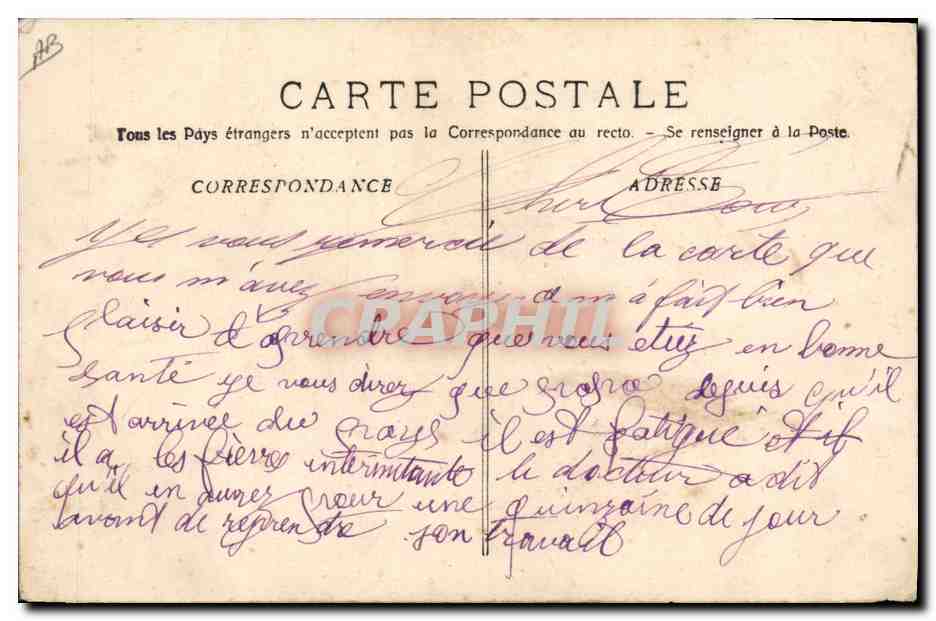 AB
CARTE POSTALE
Tous les Pays étrangers n'acceptent pas la Correspondance au recto. - Se renseigner à la Poste.
CORRESPONDANCE
ADRESSE
Cher
yes vous remercie de la carte que
vous m'avez envoyer sa m'a fait bien
plaisir d'aprendre que vous etiez en bonne
santé ye vous direz que papa depuis qu'il
est arrivée du pays il est fatigué et il
il a les fièvre intermitante le docteur a dit
qu'il en aurez pour une quinzaine de jour
avant de reprendre son travail
CRAPHIL